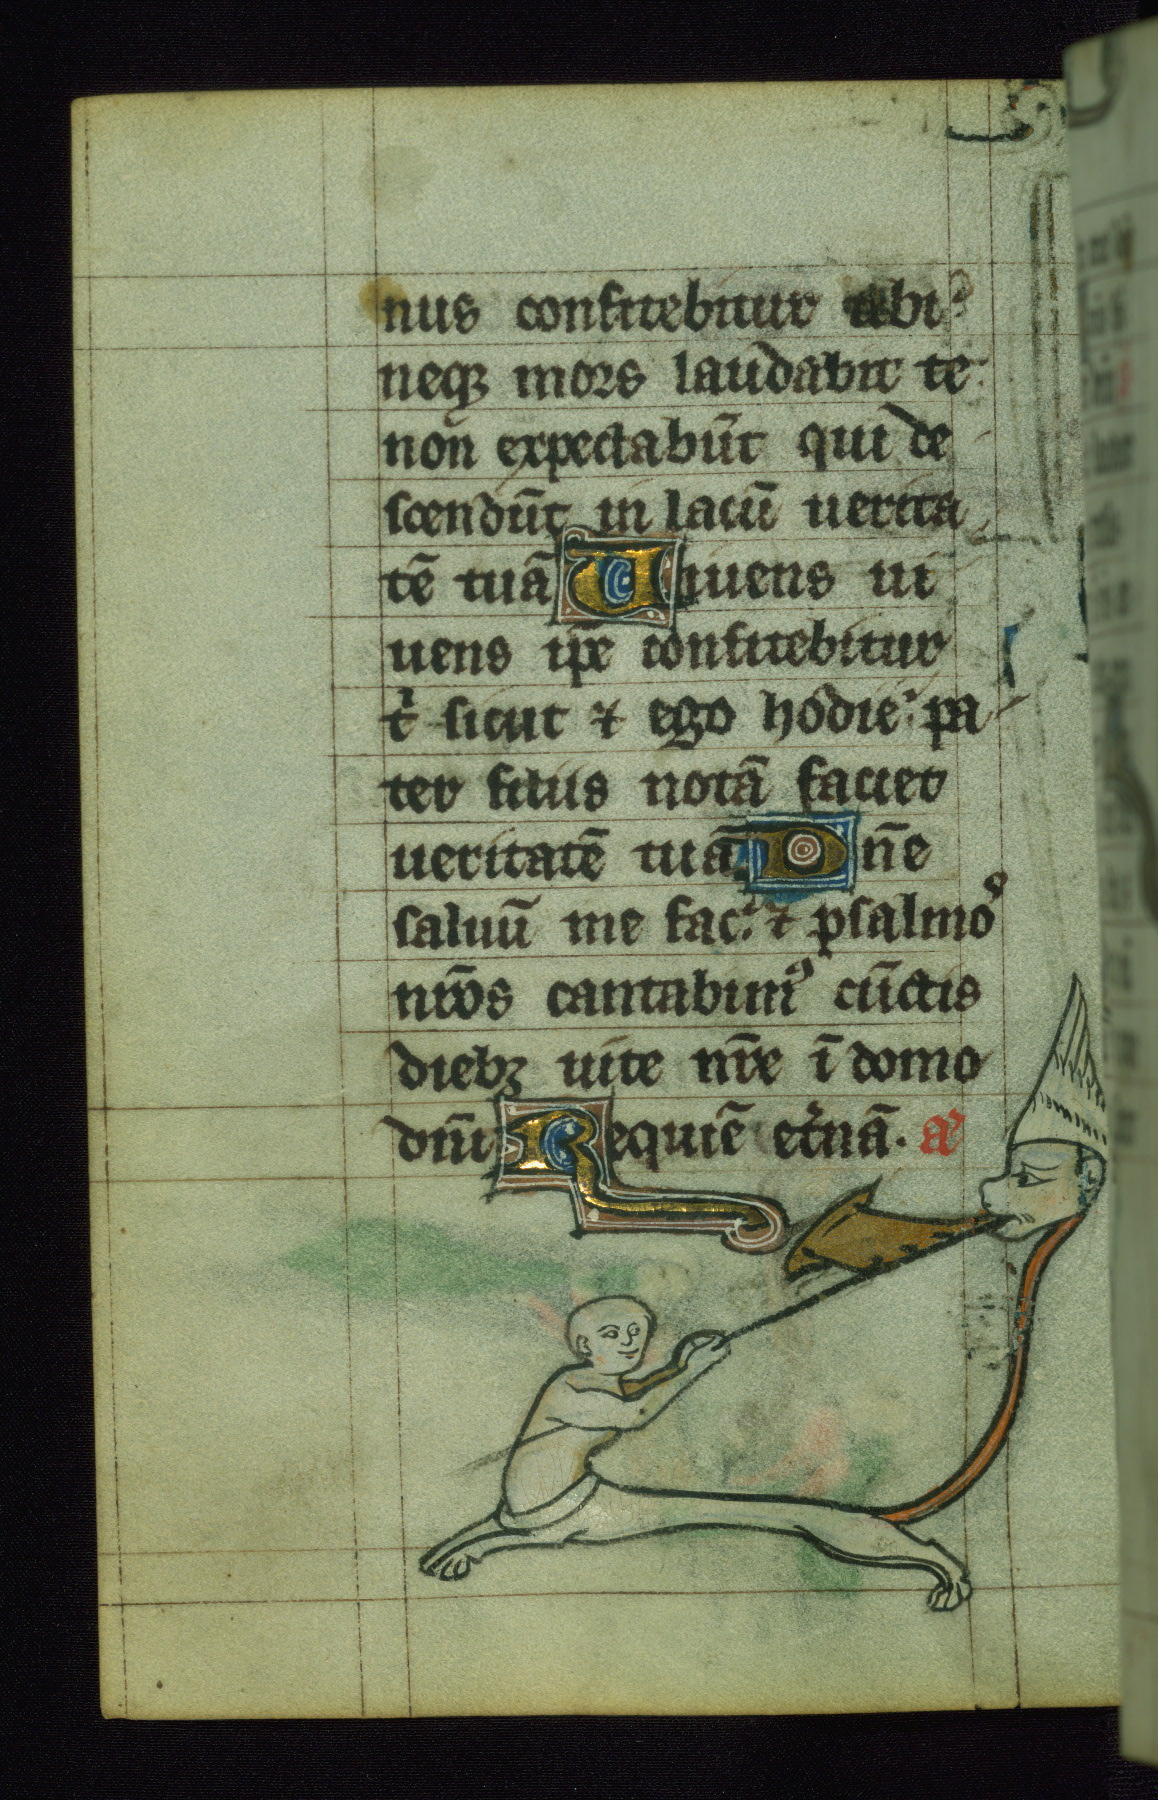 nus confitebitur tibi
neqꝫ mors laudabit te
non expectabūt qui de
scendūt in lacū uerita
tē tuā Uiuens ui
uens ip̄e confitebitur
tͥ sicut ⁊ ego hodie pa
ter filiis notā faciet
ueritatē tuā Dn̄e
saluū me fac. ⁊ psalmoꝰ
nr̄os cantabimꝰ cūctis
diebꝫ uite nr̄e ī domo
dn̄i Requiē et̓nā. a᷒